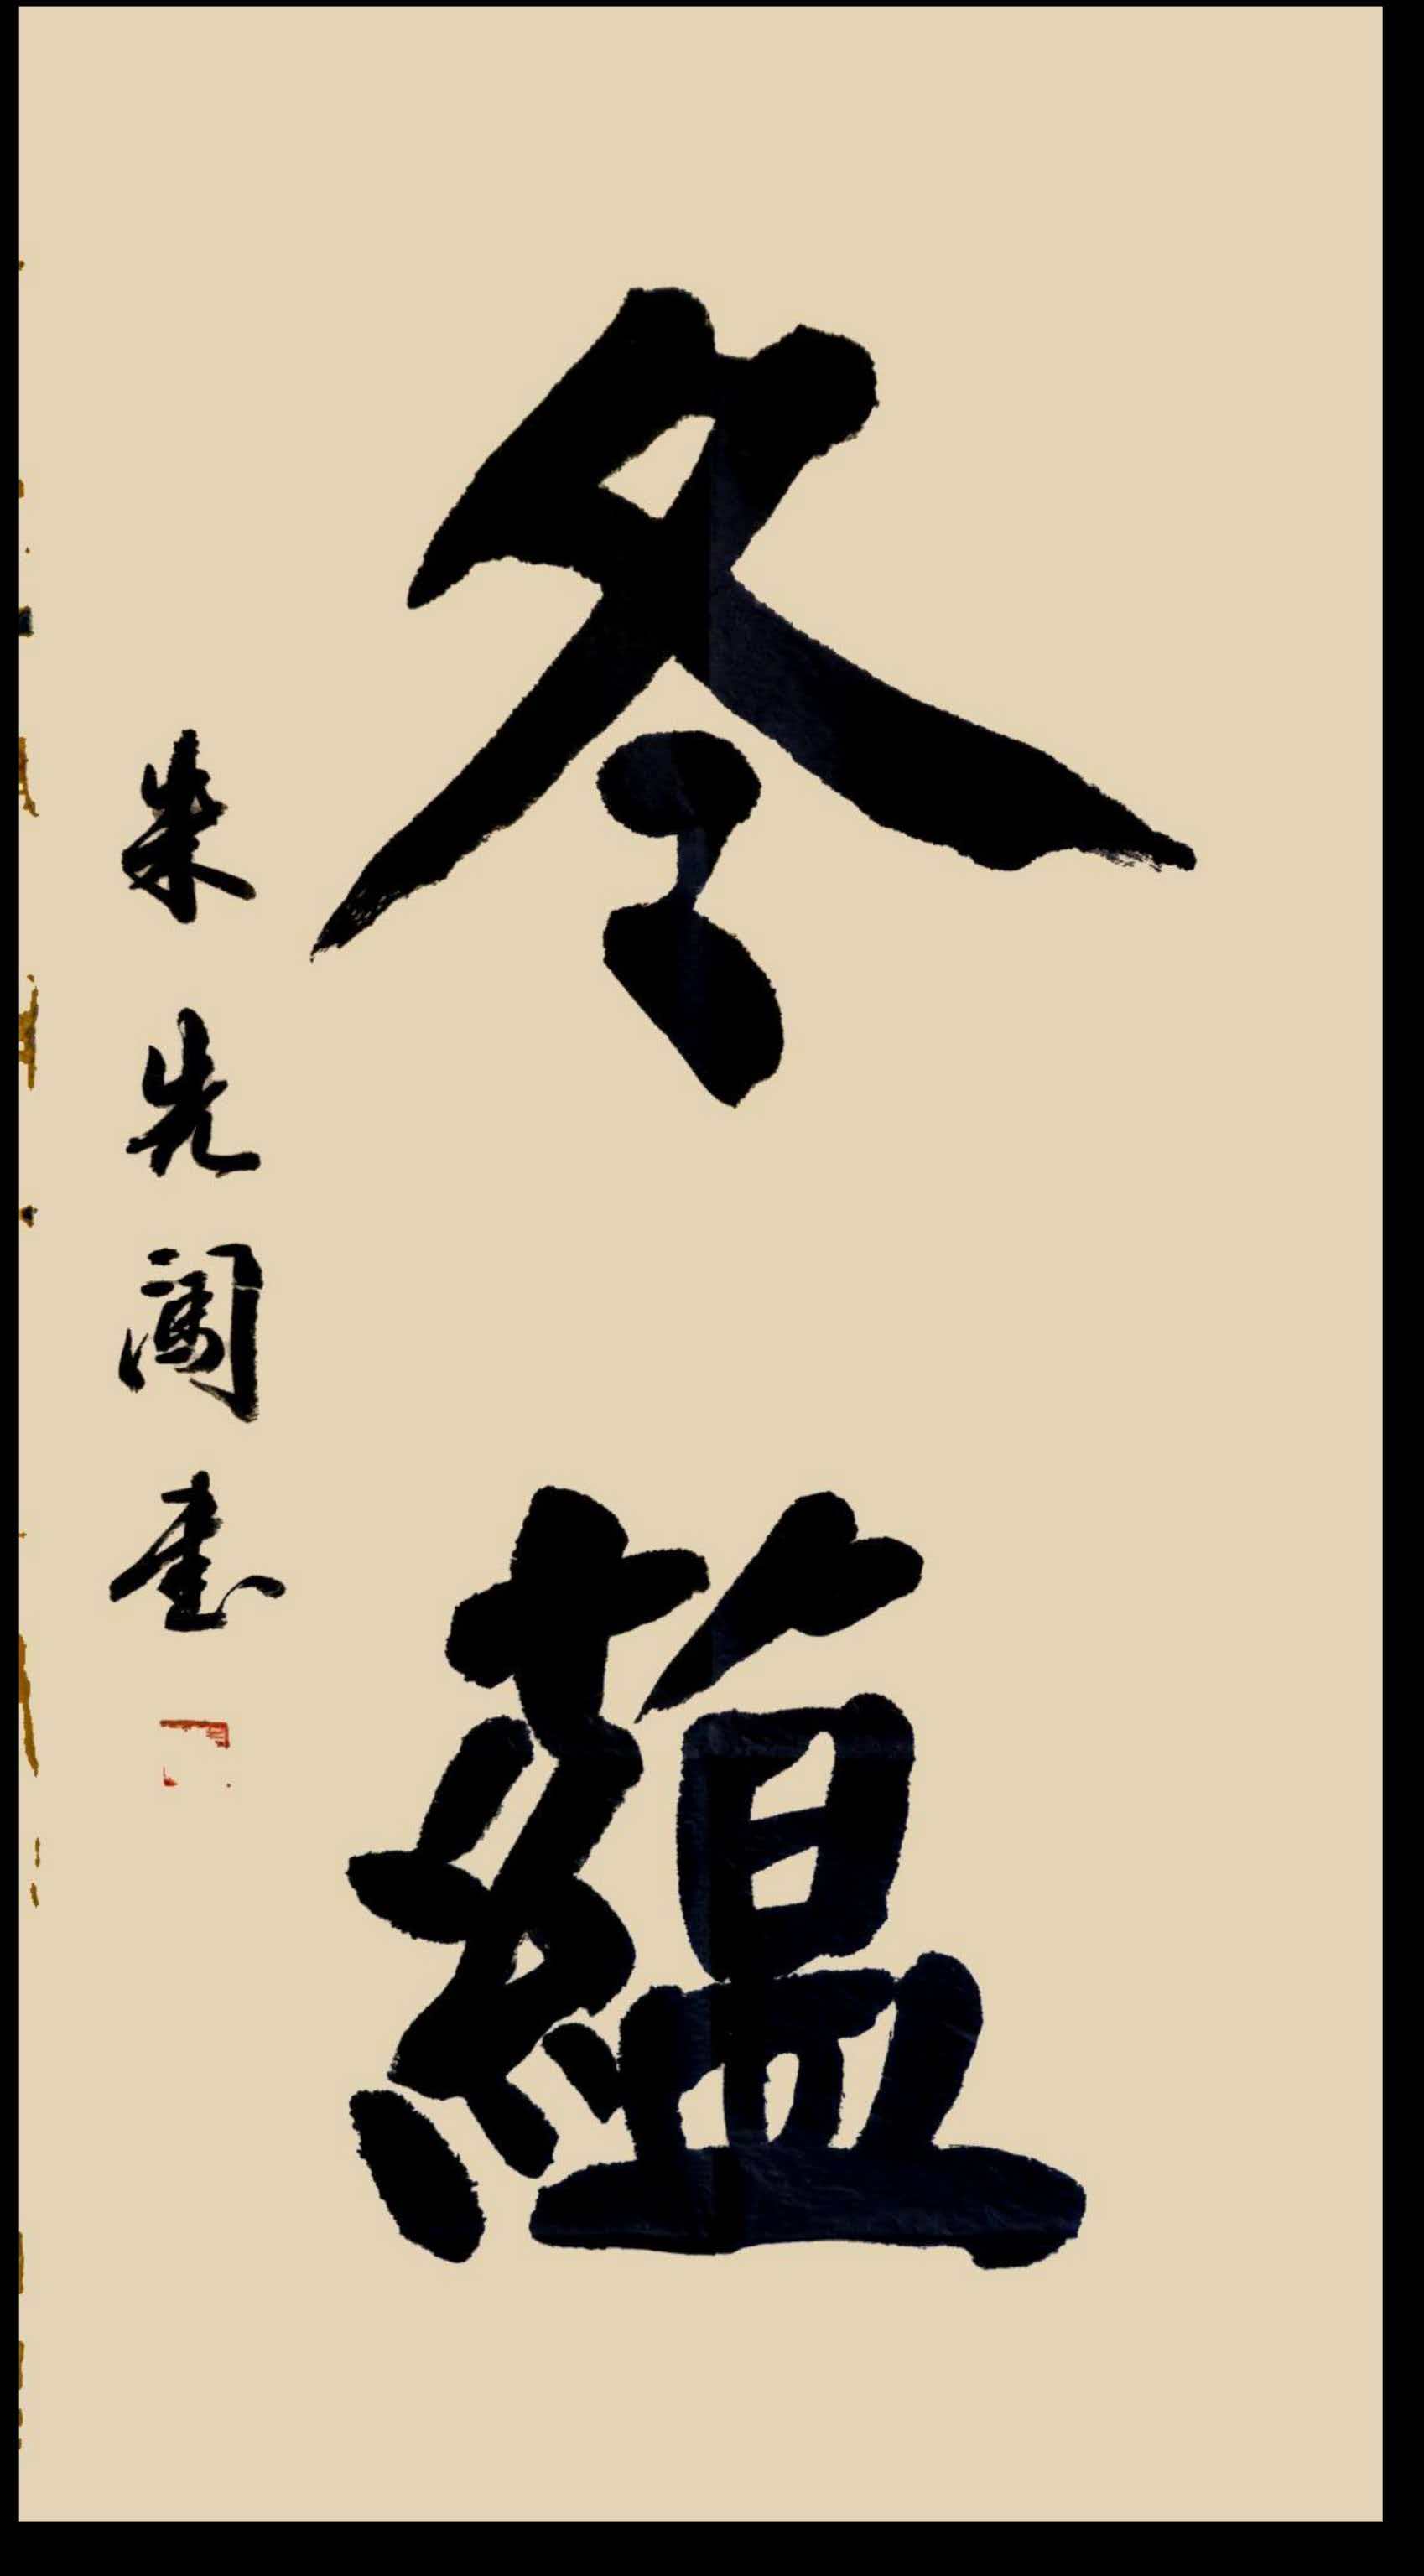 冬蘊
朱先闯書